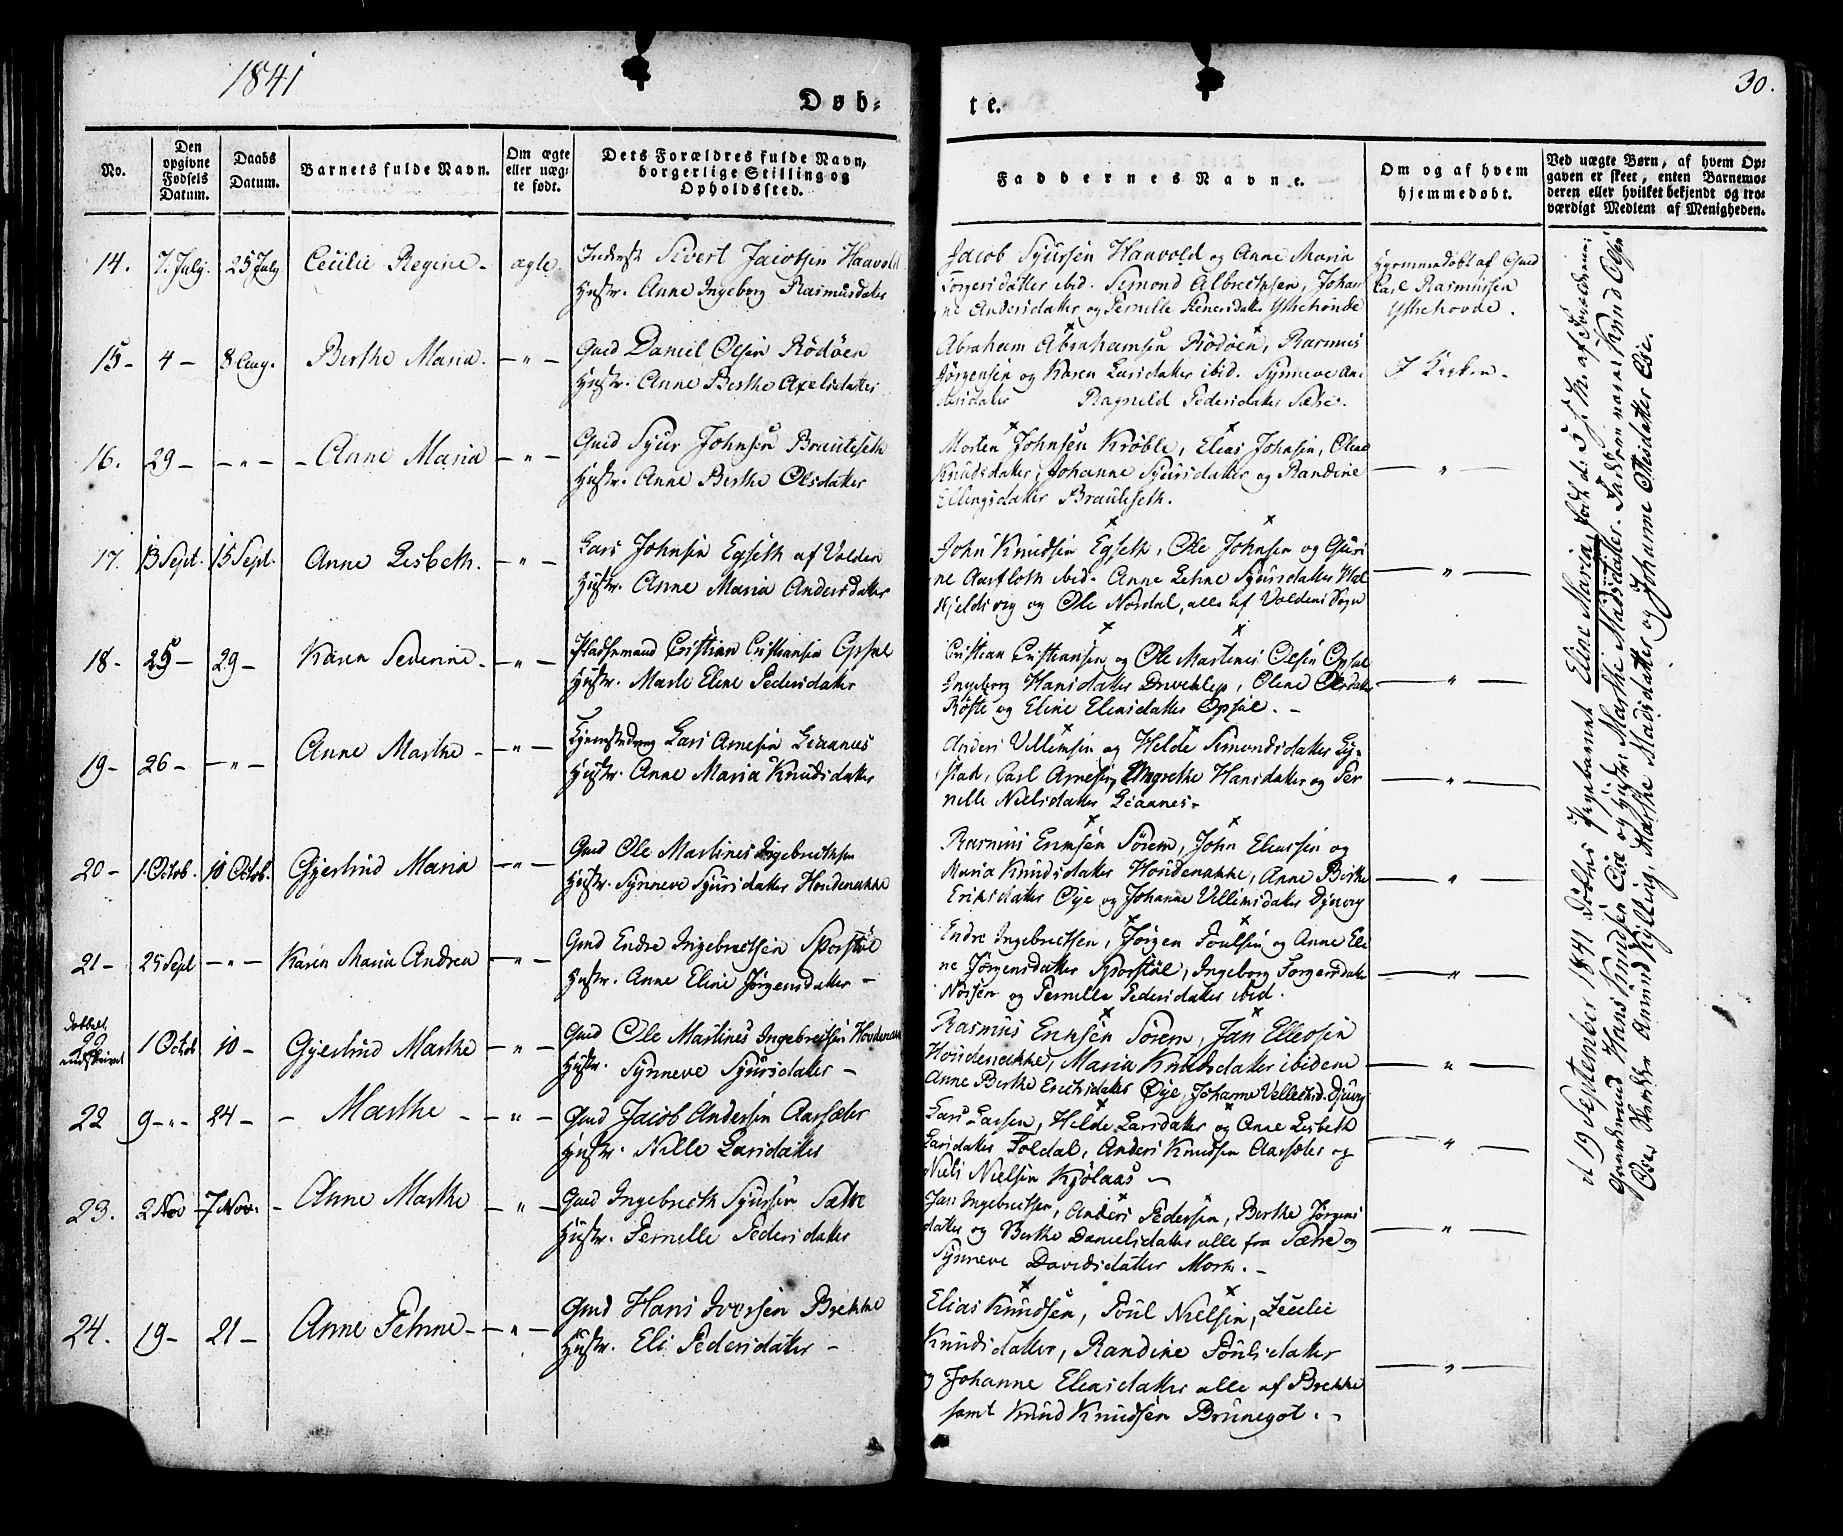 1841
30.
Døb-
te.
No.
Den opgivne Fødsels Datum.
Daabs Datum.
Barnets fulde Navn.
Om ægte eller uægte født.
Dets Forældres fulde Navn, borgerlige Stilling og Opholdssted.
Faddernes Navne.
Om og af hvem hjemmedøbt.
Ved uægte Børn, af hvem Opgaven er skeet, enten Barnemoderen eller hvilket bekjendt og troværdigt Medlem af Menigheden.
14. 7. July. 25 July Cecilie Regine - ægte
Sivert Jacobsen Haavold
Hustr. Anne Ingeborg Rasmusdatter
Jacob Sjursen Haavold og Anne Maria
Torgersdatter ibid. Simond Albrectsen, Johan-
ne Andersdatter og Pernille Stenersdatter Ytrehovde
Hjemmedøbt af Gmd
Carl Rasmussen
Ytrehovde.
15- 4 - 8 Aug. Berthe Maria. - " -
Gmd Daniel Olsen Rödöen
Hustr. Anne Berthe Axelsdatter
Abraham Abrahamsen Rödöen, Rasmus
Jörgensen og Karen Larsdatter ibid. Synneve An-
dersdatter Ragnild Pedersdatter Sætre.
I Kirken.
16. 29 - - " - - Anne Maria - " -
Gmd Sjur Johnsen Brauteseth
Hustr. Anne Berthe Olsdatter
Morten Johnsen Kröble, Elias Johnsen, Oline
Knudsdatter, Johanne Sjursdatter og Randine
Ellingsdatter Brauteseth.
- " -
17. 13 Sept. 15 Sept. Anne Lisbeth. - " -
Lars Johnsen Egseth af Volden
Hustr. Anne Maria Andersdatter
John Knudsen Egseth, Ole Johnsen og Guri-
ne Aarfloth ibid. Anne Lehne Sjursdatter
Kjeldsvig og Ole Nordal, alle af Voldens Sogn
- " -
18- 25 - 29 - Karen Severine - - " -
Pladsemand Cristian Cristiansen Opsal
Hustr. Marte Eline Pedersdatter
Cristian Cristiansen og Ole Martines Olsen Opsal
Ingeborg Hansdatter Driveklep, Oline Olsdatter
Röste og Eline Eliasdatter Opsal. -
- " -
19- 26 - - " - Anne Marthe - - " -
Lars Arnesen Liaanes
Hustr. Anne Maria Knudsdatter
Anders Villumsen og Helde Simondsdatter Ly-
stad, Carl Arnesen, Margrethe Hansdatter og Per-
nille Nielsdatter Liaanes.
- " -
20- 1 Octob. 10 Octob. Gjertrud Maria - " -
Gmd Ole Martines Ingebrictsen
Hustr. Synneve Sjursdatter Hovdenakke
Rasmus Ericksen Sörem, John Eliassen og
Maria Knudsdatter Hovdenakke, Anne Berthe
Eriksdatter Øye og Johanne Villumsdatter Djuvvig
- " -
21- 25 Sept - " - Karen Maria Andrea - " -
Gmd Endre Ingebrectsen Sporstöl
Hustr. Anne Eline Jörgensdatter -
Endre Ingebrectsen, Jörgen Poulsen og Anne Eli-
ne Jörgensdatter Sporstöl, Ingeborg Torgersdatter
og Pernille Pedersdatter ibid.
- " -
dobbelt
22
indskrevet
1 Octob 10 - Gjertrud Marthe - " -
Gmd Ole Martines Ingebrectsen Hovdenak
Hustr. Synneve Sjursdatter -
Rasmus Ericksen Sörem, Jan Ellessen
Hovdenakke, Maria Knudsdatter ibidem
Anne Berthe Ericksdatter Øye, Johanne Djuvvig
- " -
22 9 - " - 24 - - Marthe - - " -
Gmd Jacob Andersen Aarsæter
Hustr. Nille Larsdatter
Lars Larsen, Helde Larsdatter og Anne Lisbeth
Larsdatter Foldal, Anders Knudsen Aarsæter og
Niels Nielsen Kjölaas -
- " -
23. 2 Nov - 7 Nov. - Anne Marthe - " -
Gmd Ingebrecth Sjursen Sætre
Hustr. Pernille Pedersdatter
Jan Ingebrectsen, Anders Pedersen, Berthe Jörgens-
datter og Berthe Danielsdatter alle fra Sætre og
Synneve Davidsdatter Mork. -
- " -
24. 19 - 21 - Anne Pehrine - - " -
Gmd Hans Iversen Brekke
Hustr. Eli Pedersdatter -
Elias Knudsen, Poul Nielsen, Zecelie
Knudsdatter, Randine Poulsdatter
og Johanne Eliasdatter alle af Brekke
samt Knud Knudsen Brunegot. -
- " -
d 19 September 1841 döbtes Pigebarnet Eline Maria, födt d: 5 af Forældrene:
Gaardmand Hans Knudsen Ose og Hustr: Marthe Madsdatter. Faddere vare: Knud Olsen
Ose, Amund Kylling, Marthe Madsdatter og Johanne Olsdatter Ose.